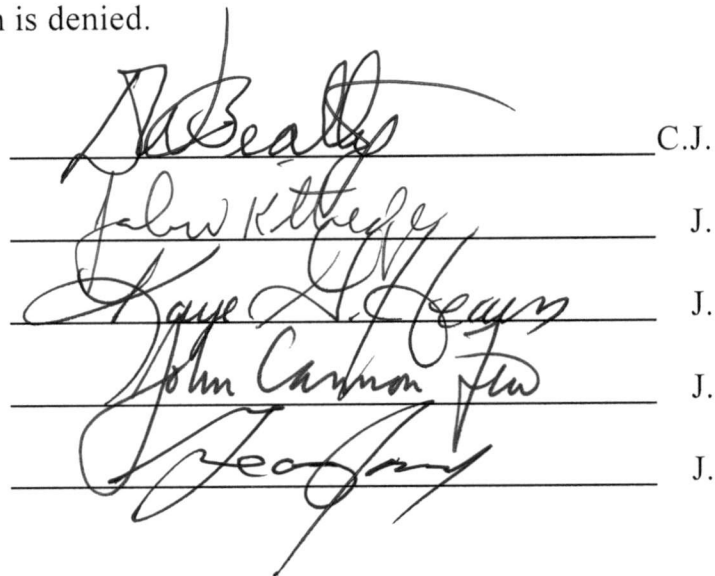 n is denied.
Beatty C.J.
John Kittredge J.
Kaye G. Hearn J.
John Cannon Few J.
J.